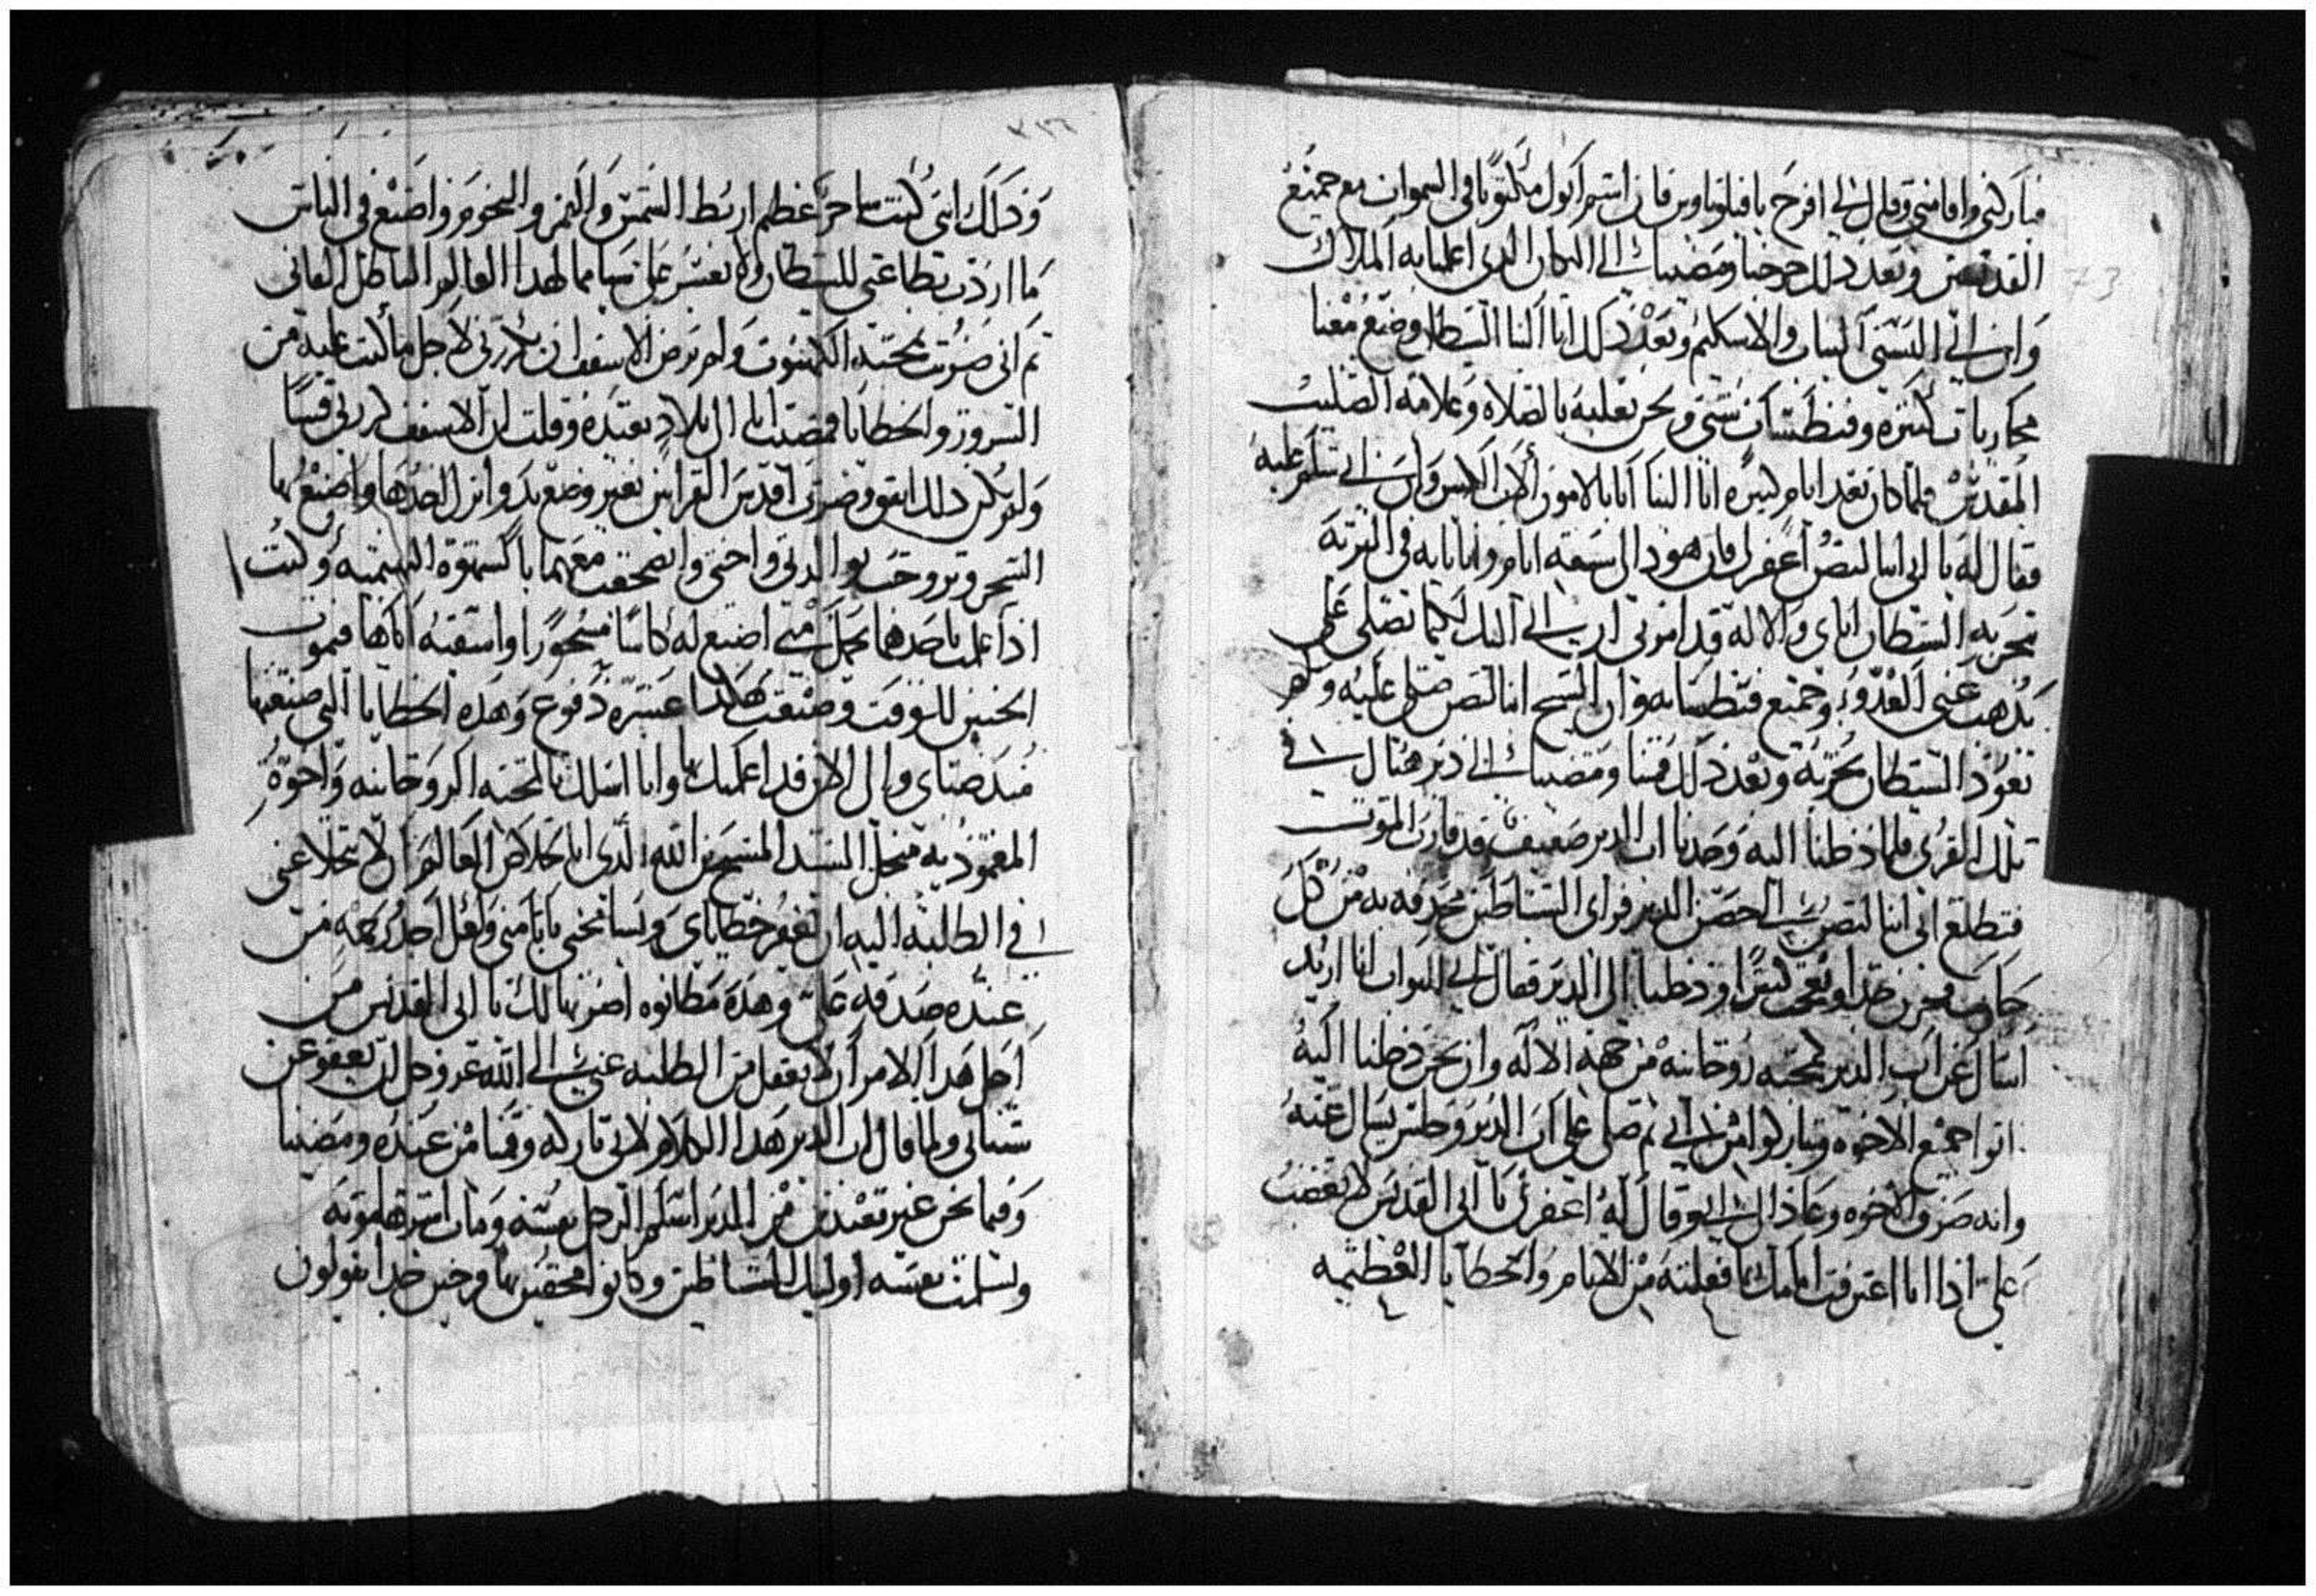 فباركني واقامني وقال لي افرح يا فيلوباوس فان اسمك مكتوبا في السموات مع جميع
القديسين وبعد ذلك خرجنا ومضينا الى المكان الذي اعلمنا به الملاك
وان ابي البسني الثياب والاسكيم وبعد ذلك اتا الينا الشيطان وصنع معنا
محاربات كثيره وفنطسات شتى ونحن نغلبه بالصلاه وعلامة الصليب
المقدس فلما كان بعد ايام كثيره اتا الينا وان ابي سلم عليه
فقال له يا ابي انبا اغفر لي فان هودا لي سبعه ايام وانا تايه في البريه
تجربه الشيطان اياي والاله قد امرني ان اتي اليك لكيما تصلي علي
يذهب عني العدو وجميع فنطساته وان الشيخ صلى عليه ولم
تعود الشيطان تجربه وبعد ذلك قمنا ومضينا الى دير هناك في
تلك القرى فلما دخلنا اليه وجدنا اب الدير ضعيف قد قارب الموت
فتطلع ابي الى حصن الدير فراى الشياطين محدقه به من كل
جانب فحزن جدا وتعجب كثيرا ودخلنا الى الدير فقال ابي للبواب انا اريد
اسال عن اب الدير لمحبه روحانيه من جهة الاله وان نحن دخلنا اليه
اتوا جميع الاخوه وتباركوا من ابي ثم صلى على اب الدير وجلس يسال عنه
وانه صرف الاخوه وعاد الى ابي وقال له اغفر لي يا ابي القديس لا تغضب
علي اذا انا اعترفت امامك بما فعلته من الاثام والخطايا العظيمه
وذلك انني كنت ساحر عظيم اربط الشمس والقمر والنجوم واصنع في الناس
ما اردت بطاعتي للشيطان ولا يعسر علي شيا مما لهدا العالم الباطل الفاني
ثم اني صرت بمحبة الكهنوت ولم يرض الاسقف ان يكرزني لاجل ما كنت عليه من
الشرور والخطايا فمضيت الى بلاد بعيده وقلت ان الاسقف كرزني قسا
ولم يكن ذلك اتفق وصرت اقدس القرابين بغير وضع يد
السحر وتزوجت بوالدتي واختي معهما بالشهوة البهيميه وكنت
اذا علمت باحدهما تحمل مني اصنع له كاسا مسحورا واسقيه اياها فيموت
الجنين للوقت وصنعت هكدا عشرة دفوع وهده الخطايا التي صنعتها
مند صباي والى الان قد اعلمتك بها وانا اسلك بالمحبه الروحانيه واخوة
المعموديه من اجل السيد المسيح ابن الله الذي اتا لخلاص العالم ان لا تتخلا عني
في الطلبه اليه ان يغفر خطاياي ويسامحني باثامي ولعل اجد رحمه من
عنده صدقه علي وهده مطانوه اضربها لك يا ابي القديس من
اجل هدا الامر ان لا تغفل من الطلبه عني الى الله عز وجل لكي يعفو عن
سيئاتي ولما قال اب الدير هدا الكلام لابي باركه وقمنا من عنده ومضينا
وفيما نحن غير بعيدين من الدير اسلم الرجل نفسه ومات
وتسلمت نفسه اوليك الشياطين وكانوا محدقين بها فرحين جدا يقولون